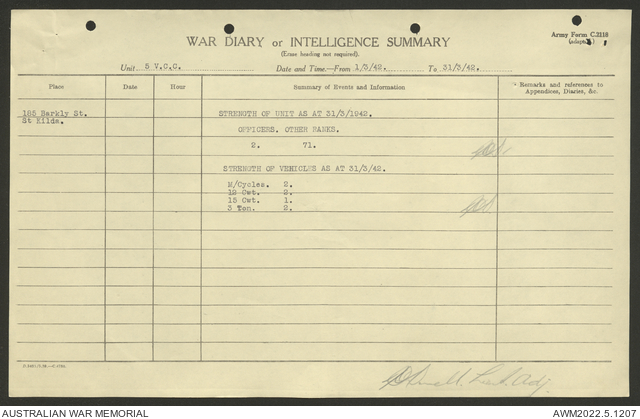 Army Form C.2118
WAR DIARY or INTELLIGENCE SUMMARY
(Erase heading not required).
Unit 5 V.C.C. Date and Time.—From 1/3/42. To 31/3/42.
Place Date Hour Summary of Events and Information Remarks and references to Appendices, Diaries, &c.
185 Barkly St. STRENGTH OF UNIT AS AT 31/3/1942.
St Kilda.
OFFICERS. OTHER RANKS.
2. 71.
STRENGTH OF VEHICLES AS AT 31/3/42.
M/Cycles. 2.
12 Cwt. 2.
15 Cwt. 1.
3 Ton. 2.
Lieut. Adj.
AUSTRALIAN WAR MEMORIAL AWM2022.5.1207